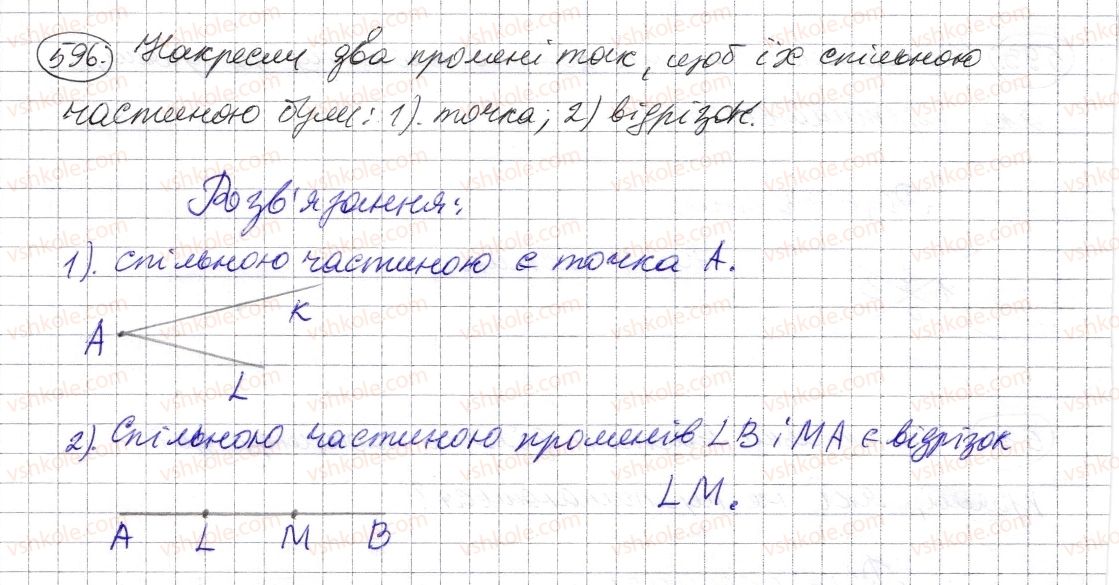 596. Накресли два промені так, щоб їх спільною
частиною були: 1). точка; 2) відрізок.
Розв'язання:
1). спільною частиною є точка А.
K
A
L
2). Спільною частиною променів LB і MA є відрізок
LM.
A L M B